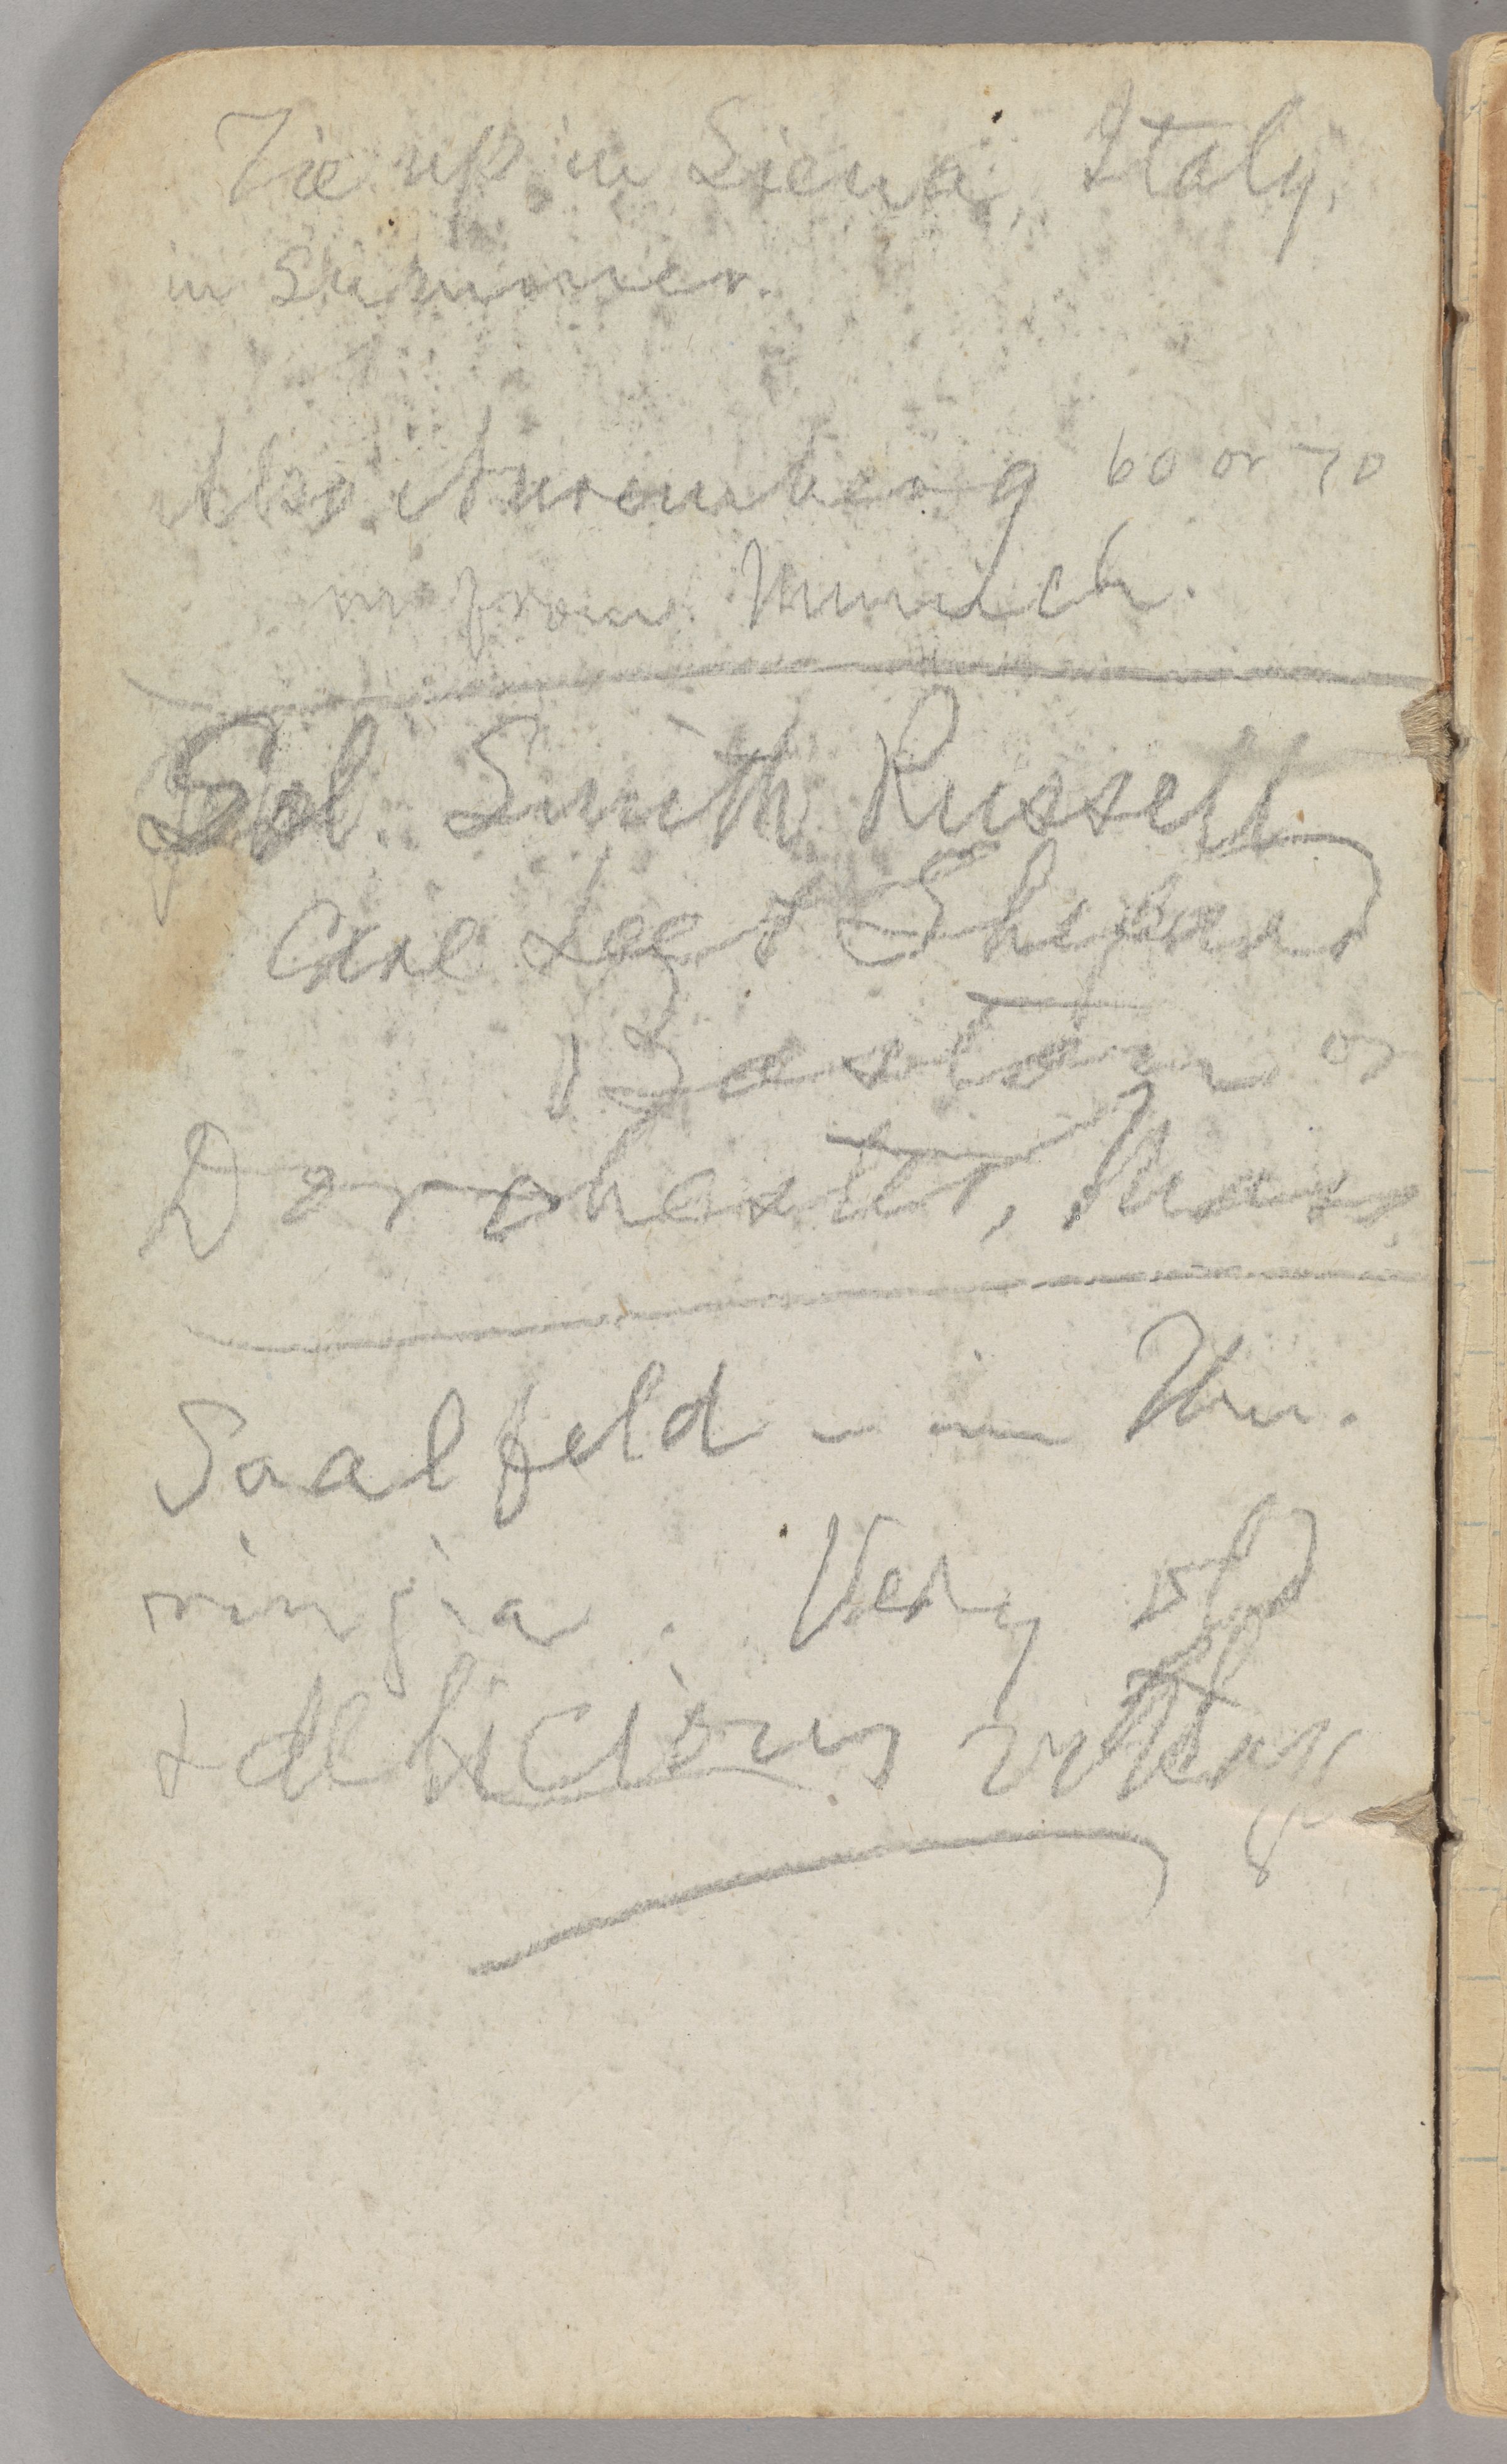 Tie up in Siena, Italy,
in Summer.
Also Nuremberg 60 or 70
m from Munich.
Sol. Smith Russell
Care Lee & Shepard
Boston or
Dorchester, Mass.
Saalfeld – in Thu-
ringia. Very old
& delicious